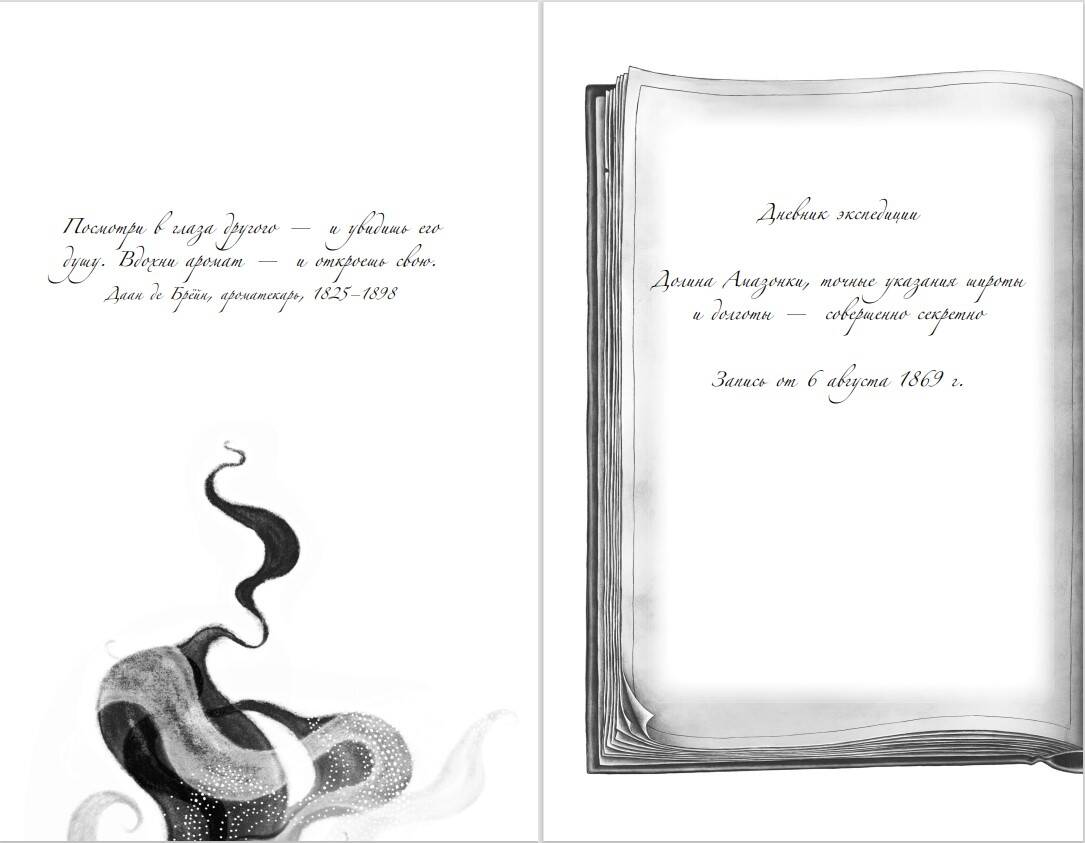 Посмотри в глаза другого — и увидишь его
душу. Вдохни аромат — и откроешь свою.
Даан де Брёйн, ароматекарь, 1825–1898
Дневник экспедиции
Долина Амазонки, точные указания широты
и долготы — совершенно секретно
Запись от 6 августа 1869 г.